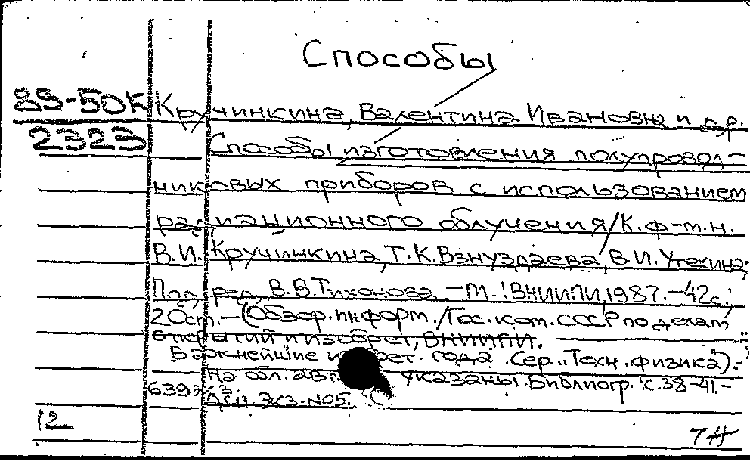 Способы
89-50К Кручинкина, Валентина Ивановна и др.
2323 Способы изготовления полупровод-
никовых приборов с использованием
радиационного облучения/К.ф-м.н.
В.И. Кручинкина, Т.К. Взнуздаева, В.И. Утехина;
Под ред. В.В. Тихонова. -М.: ВНИИПИ, 1987. -42с.;
20см. -(Обзор. информ./Гос. ком. СССР по делам
открытий и изобрет., ВНИИПИ.
Важнейшие изобрет. года. Сер.: Техн. физика).-
На обл. авт. указаны. Библиогр.: с. 38-41.-
Деп. экз. №05.
12
74